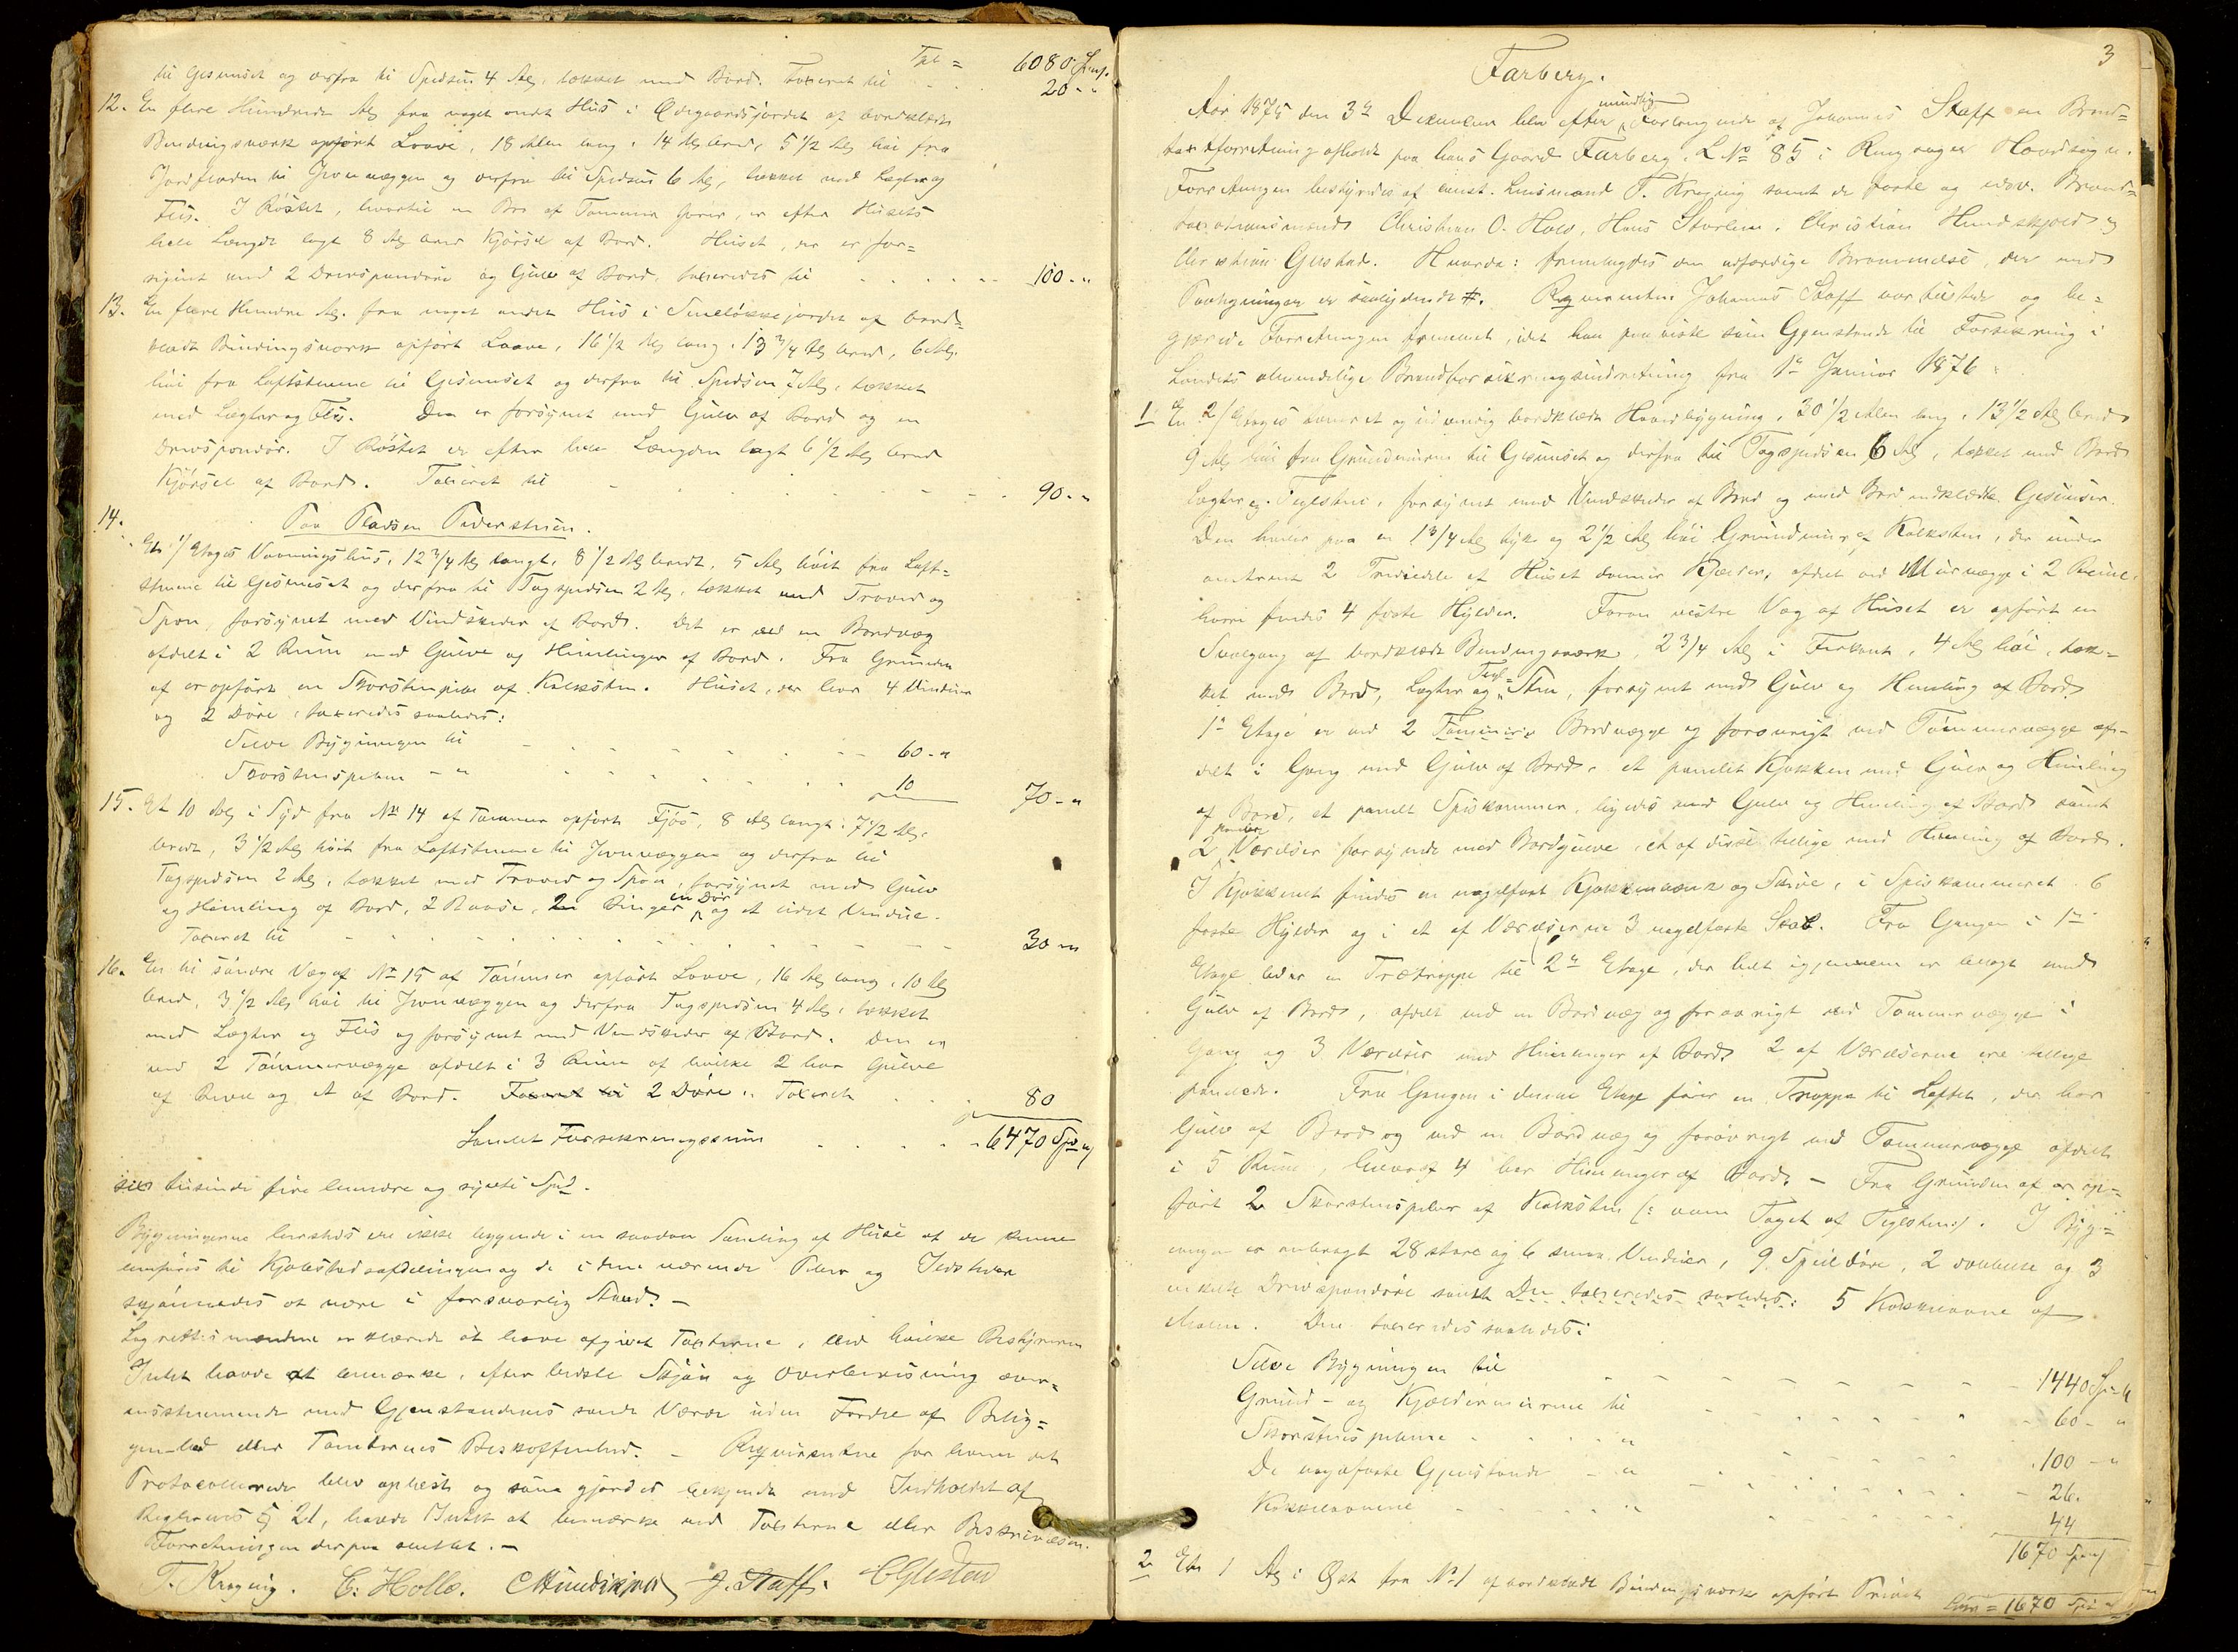 Tpt = 6080 Spd.
til Gesimset og derfra til Spidsen 4 Al., tækket med Bord. Taxeret til 20 - "
12. En flere Hundrede Al. fra noget andet Hus i Ødegaardsjordet af bordklædt
Bindingsværk opført Laave, 18 Alen lang, 14 Al. bred, 5 1/2 Al. høi fra
Jordfladen til Isvæggen og derfra til Spidsen 6 Al., tækket med Lægter og
Flis. I Røstet, hvortil en Bro af Tømmer fører, er efter Husets
hele Længde lagt 8 Al. bred Kjørsel af Bord. Huset, der er for=
synet med 2 Drivspundøre og Gulv af Bord, taxeredes til 100 - "
13. En flere Hundre Al. fra noget andet Hus i jordet af bord=
klædt Bindingsværk opført Laave, 16 1/2 Al. lang, 13 3/4 Al. bred, 6 Al.
høi fra Loftstenene til Gesimset og derfra til Spidsen 7 Al., tækket
med Lægter og Flis. Den er forsynet med Gulv af Bord og en
Drivspundør. I Røstet er efter hele Længden lagt 6 1/2 Al. bred
Kjørsel af Bord. Taxeret til 90 - "
14. Paa Pladsen
Et 1 Etages Vaaningshus, 12 3/4 Al. langt, 8 1/2 Al. bredt, 5 Al. høit fra Loft=
stenene til Gesimset og derfra til Tagspidsen 2 Al., tækket med Troved og
Spon, forsynet med Vindskeder af Bord. Det er ved en Bordvæg
afdelt i 2 Rum med Gulve og Himlinger af Bord. Fra Grunden
af er opført en Skorstenspibe af Kalksten. Huset, der har 4 Vinduer
og 2 Døre, taxeredes saaledes:
Selve Bygningen til 60 - "
Skorstenspiben - " 10
70 - "
15. Et 10 Al. i Syd fra No 14 af Tømmer opført Fjøs, 8 Al. langt, 7 1/2 Al.
bredt, 3 1/2 Al. høit fra Loftstenene til og derfra til
Tagspidsen 2 Al., tækket med Troved og Spon, forsynet med Gulv
og Himling af Bord, 2 Baase, 2 Binger en Dør og et lidet Vindue.
Taxeret til 30 - "
16. En til søndre Væg af No 15 af Tømmer opført Laave, 16 Al. lang, 10 Al.
bred, 3 1/2 Al. høi til og derfra Tagspidsen 4 Al., tækket
med Lægter og Flis og forsynet med Vindskeder af Bord. Den er
ved 2 Tømmervægge afdelt i 3 Rum af hvilke 2 har Gulve
af og et af Bord. Taxeret til 2 Døre. Taxeret 80
Samlet Forsikringssum 6470 Spd
sex tusinde fire hundre og sytti Spd.
Bygningerne ere ikke liggende i en saadan Samling af Huse at de kunne
henføres til Kjøbstadsafdelingen og de i dem værende Piber og Ildsteder
skjønnedes at være i forsvarlig Stand. -
Lagrettesmændene erklærede at have afgivet Taxterne, ved hvilke Bestyreren
Intet havde at bemærke, efter bedste Skjøn og Overbevisning over=
ensstemmende med Gjenstandenes sande Værdi uden Fradrag af Belig=
genhed eller Tomternes Beskaffenhed. - Reqvirenten for hvem det
Protocollerede blev oplæst og som gjordes bekjendt med Indholdet af
Reglernes § 21, havde Intet at bemærke ved Taxterne eller Beskrivelsen.
Forretningen derpaa sluttet. -
T. Kragnig. C. Holle. J. Staff. C Gjestad
3
Farberg.
Aar 1875 den 3die December blev efter mundtlig Forlangende af Johannes Staff en Brand=
taxtforretning afholdt paa hans Gaard Farberg, L No 85 i Ringsager Hovedsogn.
Forretningen bestyredes af const. Lensmand T. Kragnig samt de faste og edsv. Brand=
taxationsmænd Christian O. Holo, Hans Storlien, Christian Hundskjold og
Christian Gjestad. Hvorda: fremlagdes den udfærdige Berammelse, der med
Paategninger er saalydende #. Reqvirenten Johannes Staff var tilstede og be=
gjærede Forretningen fremmet, idet han paaviste som Gjenstande til Forsikring i
Landets almindelige Brandforsikringsindretning fra 1ste Januar 1876:
1. En 2 Etages tømret og udvendig bordklædt Hovedbygning, 30 1/2 Alen lang, 13 1/2 Al. bred
9 Al. høi fra Grundmuren til Gesimset og derfra til Tagspidsen 6 Al., tækket med Bord
Lægter og Teglsten, forsynet med Vindskeder af Bord og med Bord indklædte Gesimser.
Den hviler paa en 1 3/4 Al. tyk og 2 1/2 Al. høi Grundmur af Kalksten, der under
omtrent 2 Trediedele af Huset danner Kjælder, afdelt ved Murvægge i 2 Rum,
hvori findes 4 faste Hylder. Foran vestre Væg af Huset er opført en
Svalgang af bordklædt Bindingsværk, 2 3/4 Al. i Firkant, 4 Al. høi, tæk=
ket med Bord, Lægter og Tegl=Sten, forsynet med Gulv og Himling af Bord.
1ste Etage er ved 2 Tømmer Bordvægge og forøvrigt ved Tømmervægge af-
delt i Gang med Gulv af Bord, et panelet Kjøkken med Gulv og Himling
af Bord, et panelt Spiskammer, ligeledes med Gulv og Himling af Bord samt
2 panelte Værelser forsynede med Bordgulve, et af disse tillige med Himling af Bord.
I Kjøkkenet findes en nagelfast Kjøkkenbænk og Skive, i Spiskammeret 6
faste Hylder og i et af Værelserne 3 nagelfaste Skab. Fra Gangen i 1ste
Etage leder en Trætrappe til 2den Etage, der helt igjennem er belagt med
Gulv af Bord, afdelt ved en Bordvæg og forøvrigt ved Tømmervægge i
Gang og 3 Værelser med Himlinger af Bord. 2 af Værelserne ere tillige
panelede. Fra Gangen i denne Etage fører en Trappe til Loftet, der har
Gulv af Bord og ved en Bordvæg og forøvrigt ved Tømmervægge afdelt
i 5 Rum, hvoraf 4 har Himlinger af Bord. - Fra Grunden af er op=
ført 2 Skorstenspiber af Kalksten (: oven Taget af Teglsten :). I Byg=
ningen er anbragt 28 store og 6 smaa Vinduer, 9 Speildøre, 2 dobbelte og 3
enkelte Drivspundøre samt Den taxeredes saaledes: 5 Kakkelovne af
Den taxeredes saaledes:
Selve Bygningen til 1440 Spd "
Grund- og Kjældermurene til 60 - "
Skorstenspiberne " 100 - "
De nagelfaste Gjenstande - " 26.
Kakkelovnene " 44
1670 Spd
2. Et 1 Al. i Øst fra No 1 af bordklædt Bindingsværk opført Privet
= 1670 Spd